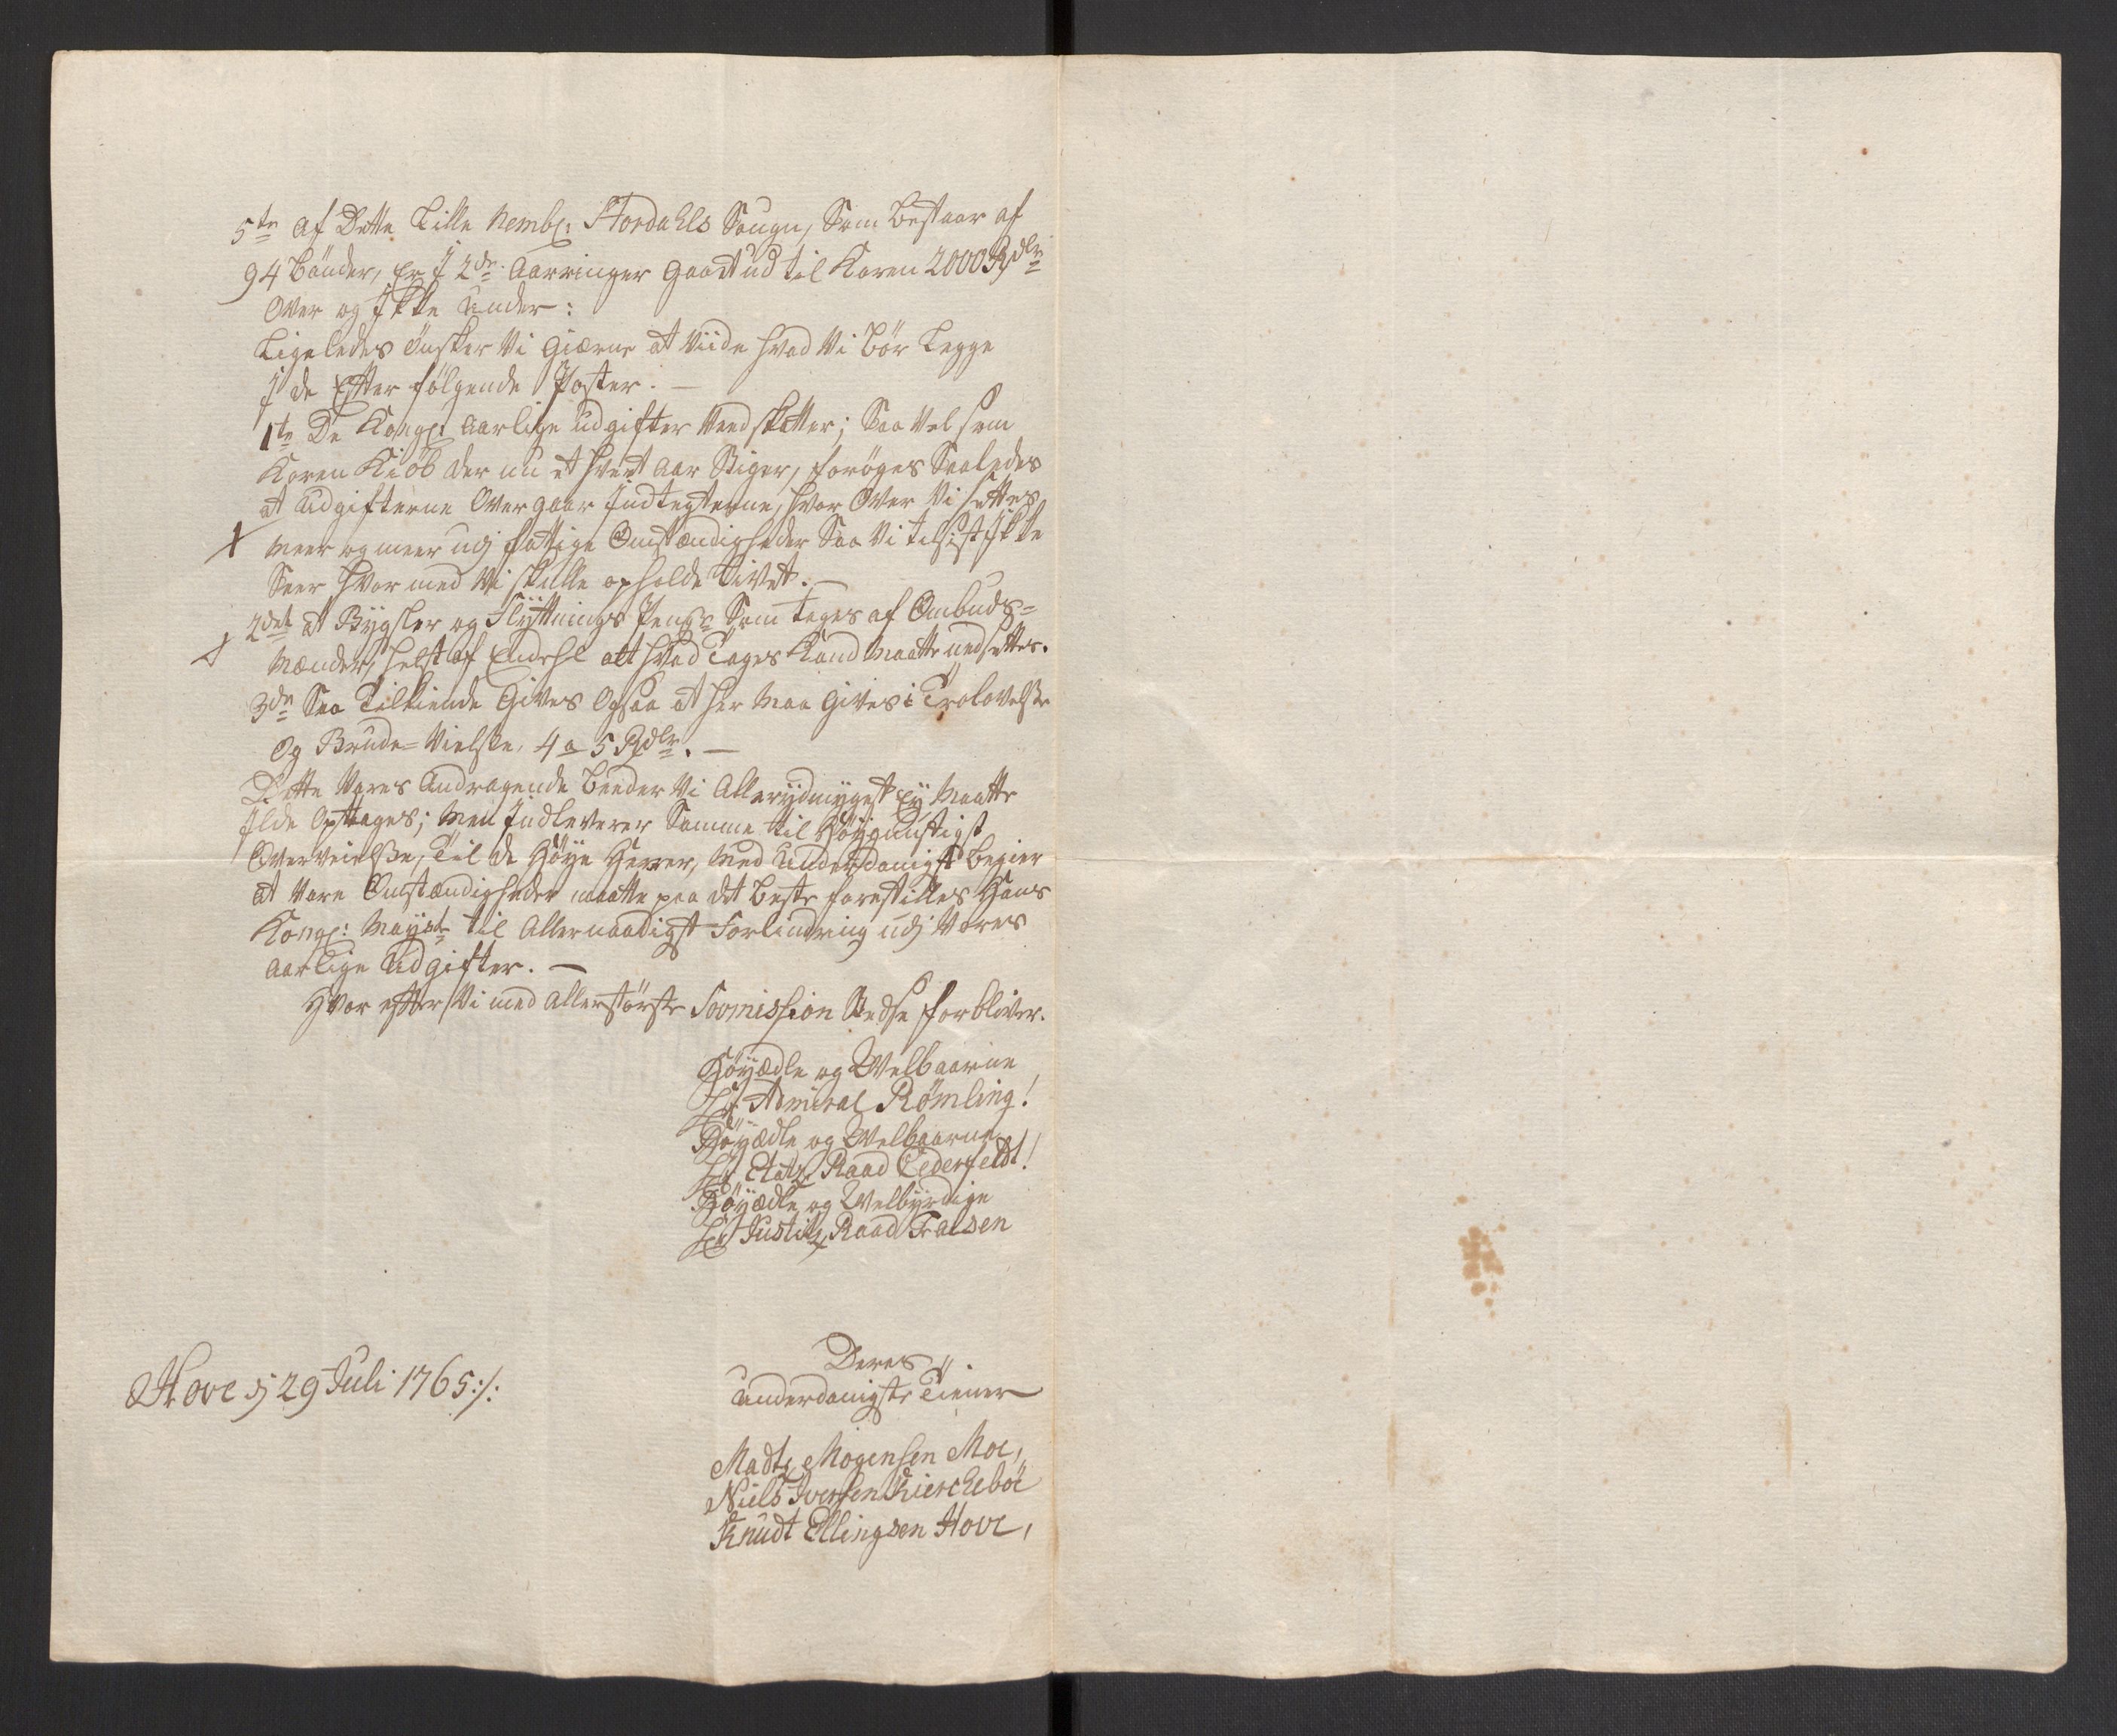 5te Af Dette Lille Nembl: Stordahls Sougn, Som bestaar af
94 bönder, Er I 2de Aarringer Gaaet ud til Koren 2000 Rdlr
Over og Ikke under:
Ligeledes önsker Vi Gierne at Viide hvad Vi bör Legge
I de Efter fölgende Poster. —
1te De Kongl: Aarlige udgifter Ved skatter; Saa Vel som
Koren Kiöb der nu et hvert Aar Stiger, foröges Saaledes
at udgifterne Overgaar Indtegterne, hvor Over Vi settes
meer og meer udj fattige Omstændigheder Saa Vi tilsist Ikke
Seer hvor med Vi skulle opholde Livet. —
2det at Bygsler og Flyttnings Penge Som tages af Ombuds-
Mænder, helst af Endehl alt hvad Tages Kand maatte nedsettes.
3de Saa Tilkiende Gives Ogsaa at her maa Gives i Trolovelse
Og Brude-Vielse, 4 a 5 Rdlr. —
Dette Vores Andragende beeder Vi Allerydmygest Ey Maatte
Ilde Opttages; Men Indleverer Samme til Höygunstigst
Overveielsse, Til de Höye Herrer, Med Underdanigst begier
at Vore Omstændigheder maatte paa det beste forestilles Hans
Kongl: Mayst til Allernaadigst Forlindring udj Vores
Aarlige Udgifter. —
Hvor efter Vi med Allerstörste Soumission Stedse forbliver.
Höyædle og Welbaarne
Hr Admiral Römling!
Höyædle og Welbaarne
Hr Etatz Raad Cederfeldt!
Höyædle og Welbyrdige
Hr Justitz Raad Fralsen
Deres
Underdanigste Tiener
Hove dj 29 Juli 1765:/:
Madtz Mogensen Moe,
Niels Iversen Kiercheböe
Knudt Ellingsen Hove,